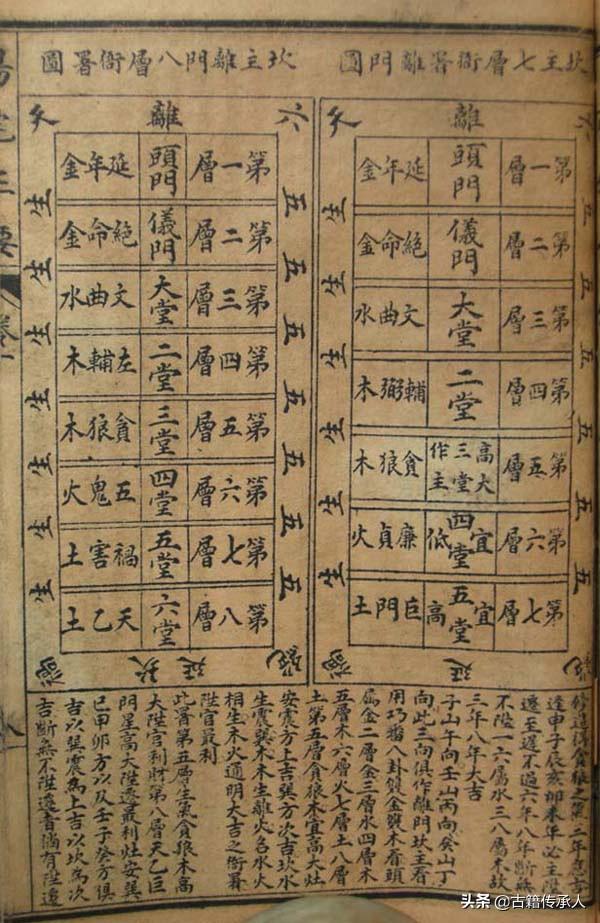 坎主七層衙署離門圖
六 離 天
第一層 頭門 延年金
第二層 儀門 絕命金
第三層 大堂 文曲水
第四層 二堂 輔弼木
第五層 高大三堂作主 貪狼木
第六層 宜四堂低 廉貞火
第七層 宜五堂高 巨門土
五 五 五 五 五 五
生 生 生 生 生 生
絕 延 禍
坎主離門八層衙署圖
六 離 天
第一層 頭門 延年金
第二層 儀門 絕命金
第三層 大堂 文曲水
第四層 二堂 左輔木
第五層 三堂 貪狼木
第六層 四堂 五鬼火
第七層 五堂 禍害土
第八層 六堂 天乙土
五 五 五 五 五 五 五
生 生 生 生 生 生 生
絕 延 禍
修造得貪狼之氣二年吉
逢申子辰亥卯未年必主陞
遷至遲不過六年八年斷無
不陞一六屬水三八屬木故
三年八年大吉
子山午向壬山丙向癸山丁
向此三向俱作離門坎主看
用巧番八卦雙金雙木看頭
層金二層金三層水四層木
五層木六層火七層土八層
土第五層貪狼木宜高大灶
安震方上吉巽方次吉坎水
生震巽木木生離火名水火
相生木火通明大吉之衙署
陞官最利
此第五層生氣貪狼木高
大陞官利財第八層天乙巨
門星高大陞遷最利灶安巽
巳甲卯方以及壬子癸方俱
吉以巽震為上吉以坎為次
吉斷無不陞遷者倘有陞遷
陽宅三要
頭条 @古籍传承人